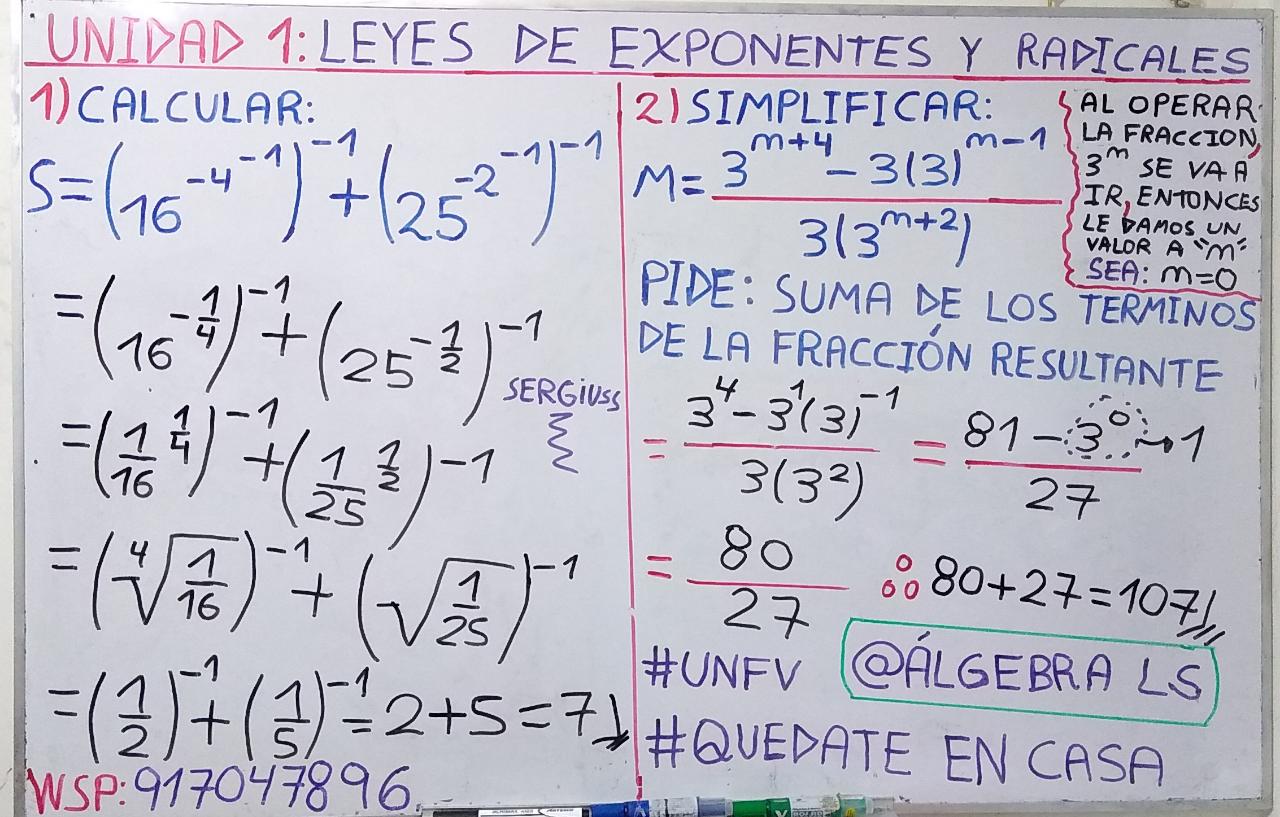 UNIDAD 1: LEYES DE EXPONENTES Y RADICALES
1) CALCULAR:
S = (16^-4^-1)^-1 + (25^-2^-1)^-1
= (16^-1/4)^-1 + (25^-1/2)^-1
SERGiUSS
= (1/16^1/4)^-1 + (1/25^1/2)^-1
= (⁴√(1/16))^-1 + (√(1/25))^-1
= (1/2)^-1 + (1/5)^-1 = 2+5 = 7
WSP: 917047896
2) SIMPLIFICAR:
M = (3^(m+4) - 3(3)^(m-1)) / (3(3^(m+2)))
AL OPERAR
LA FRACCION,
3^m SE VA A
IR, ENTONCES
LE DAMOS UN
VALOR A "m"
SEA: m=0
PIDE: SUMA DE LOS TERMINOS
DE LA FRACCIÓN RESULTANTE
= (3^4 - 3^1(3)^-1) / (3(3^2)) = (81 - 3^0→1) / 27
= 80/27 ∴ 80+27=107
#UNFV @ÁLGEBRA LS
#QUEDATE EN CASA